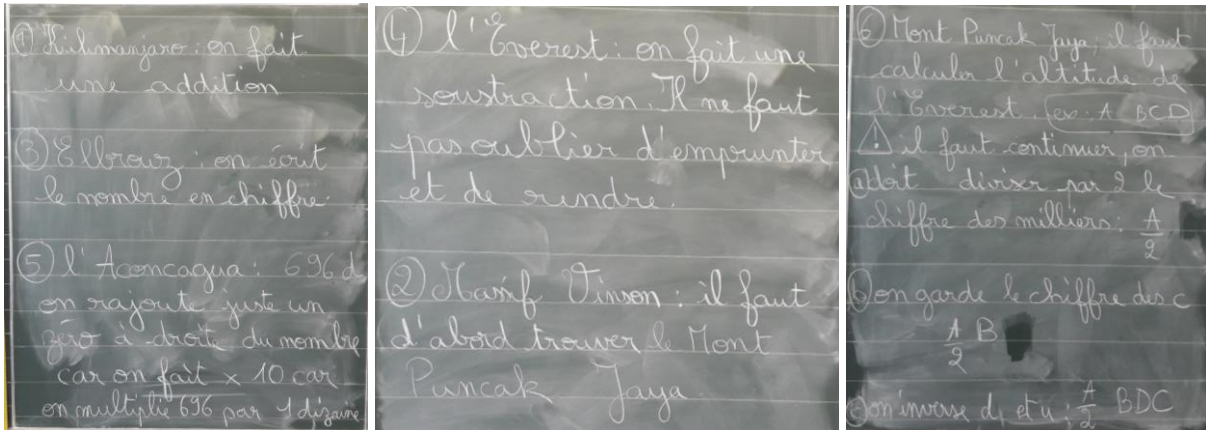 ① Kilimanjaro : on fait
une addition
③ Elbrouz : on écrit
le nombre en chiffre.
⑤ l'Aconcagua : 696 d
on rajoute juste un
zéro à droite du nombre
car on fait × 10 car
on multiplie 696 par 1 dizaine
④ l'Everest : on fait une
soustraction. Il ne faut
pas oublier d'emprunter
et de rendre.
② Massif Vinson : il faut
d'abord trouver le Mont
Puncak Jaya.
⑥ Mont Puncak Jaya : il faut
calculer l'altitude de
l'Everest. (ex : A BCD)
⚠ il faut continuer, on
ⓐ doit diviser par 2 le
chiffre des milliers : A/2
ⓑ on garde le chiffre des c
A/2 B
ⓒ on inverse d et u : A/2 BDC